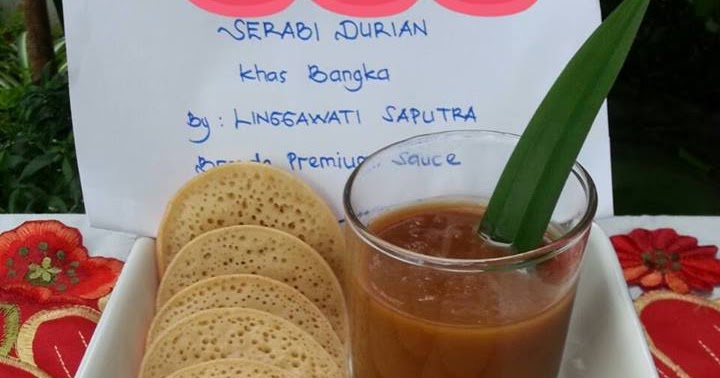 SERABI DURIAN
Khas Bangka
By : LINGGAWATI SAPUTRA
Premium Sauce